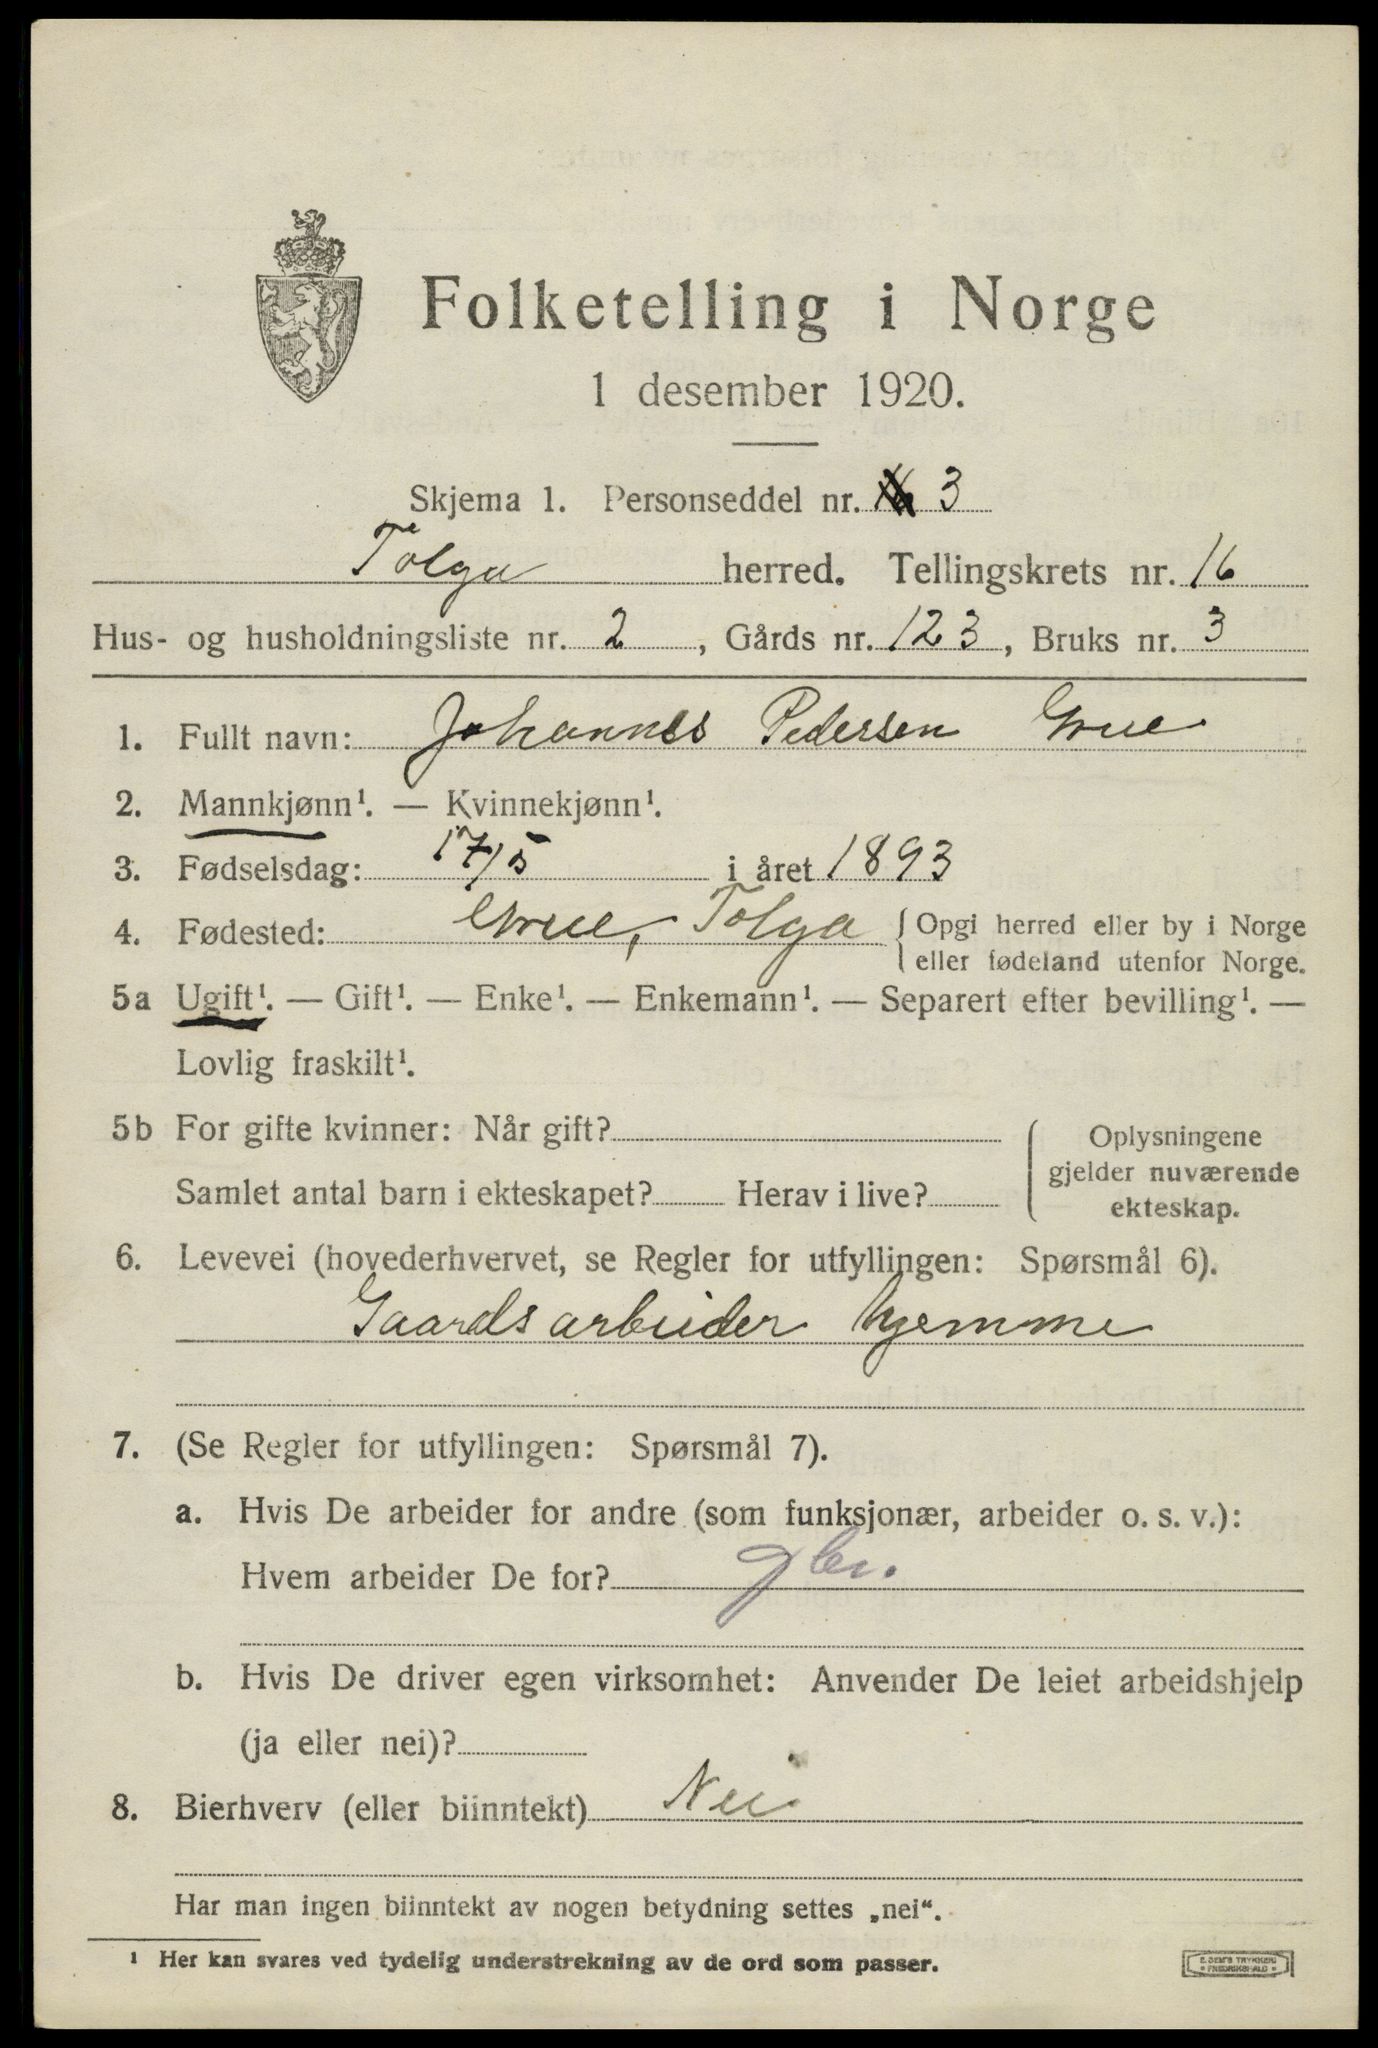 Folketelling i Norge
1 desember 1920.
Skjema 1. Personseddel nr. 3
Tolga herred. Tellingskrets nr. 16
Hus- og husholdningsliste nr. 2, Gårds nr. 123, Bruks nr. 3
1. Fullt navn: Johannes Pedersen Grue
2. Mannkjønn¹. — Kvinnekjønn¹.
3. Fødselsdag: 17/5 i året 1893
4. Fødested: Grue, Tolga { Opgi herred eller by i Norge
eller fødeland utenfor Norge.
5a Ugift¹. — Gift¹. — Enke¹. — Enkemann¹. — Separert efter bevilling¹. —
Lovlig fraskilt¹.
5b For gifte kvinner: Når gift?
Samlet antal barn i ekteskapet? Herav i live?
Oplysningene
gjelder nuværende
ekteskap.
6. Levevei (hovederhvervet, se Regler for utfyllingen: Spørsmål 6).
Gaardsarbeider hjemme
7. (Se Regler for utfyllingen: Spørsmål 7).
a. Hvis De arbeider for andre (som funksjonær, arbeider o. s. v.):
Hvem arbeider De for?
b. Hvis De driver egen virksomhet: Anvender De leiet arbeidshjelp
(ja eller nei)?
8. Bierhverv (eller biinntekt) Nei
Har man ingen biinntekt av nogen betydning settes „nei“.
¹ Her kan svares ved tydelig understrekning av de ord som passer.